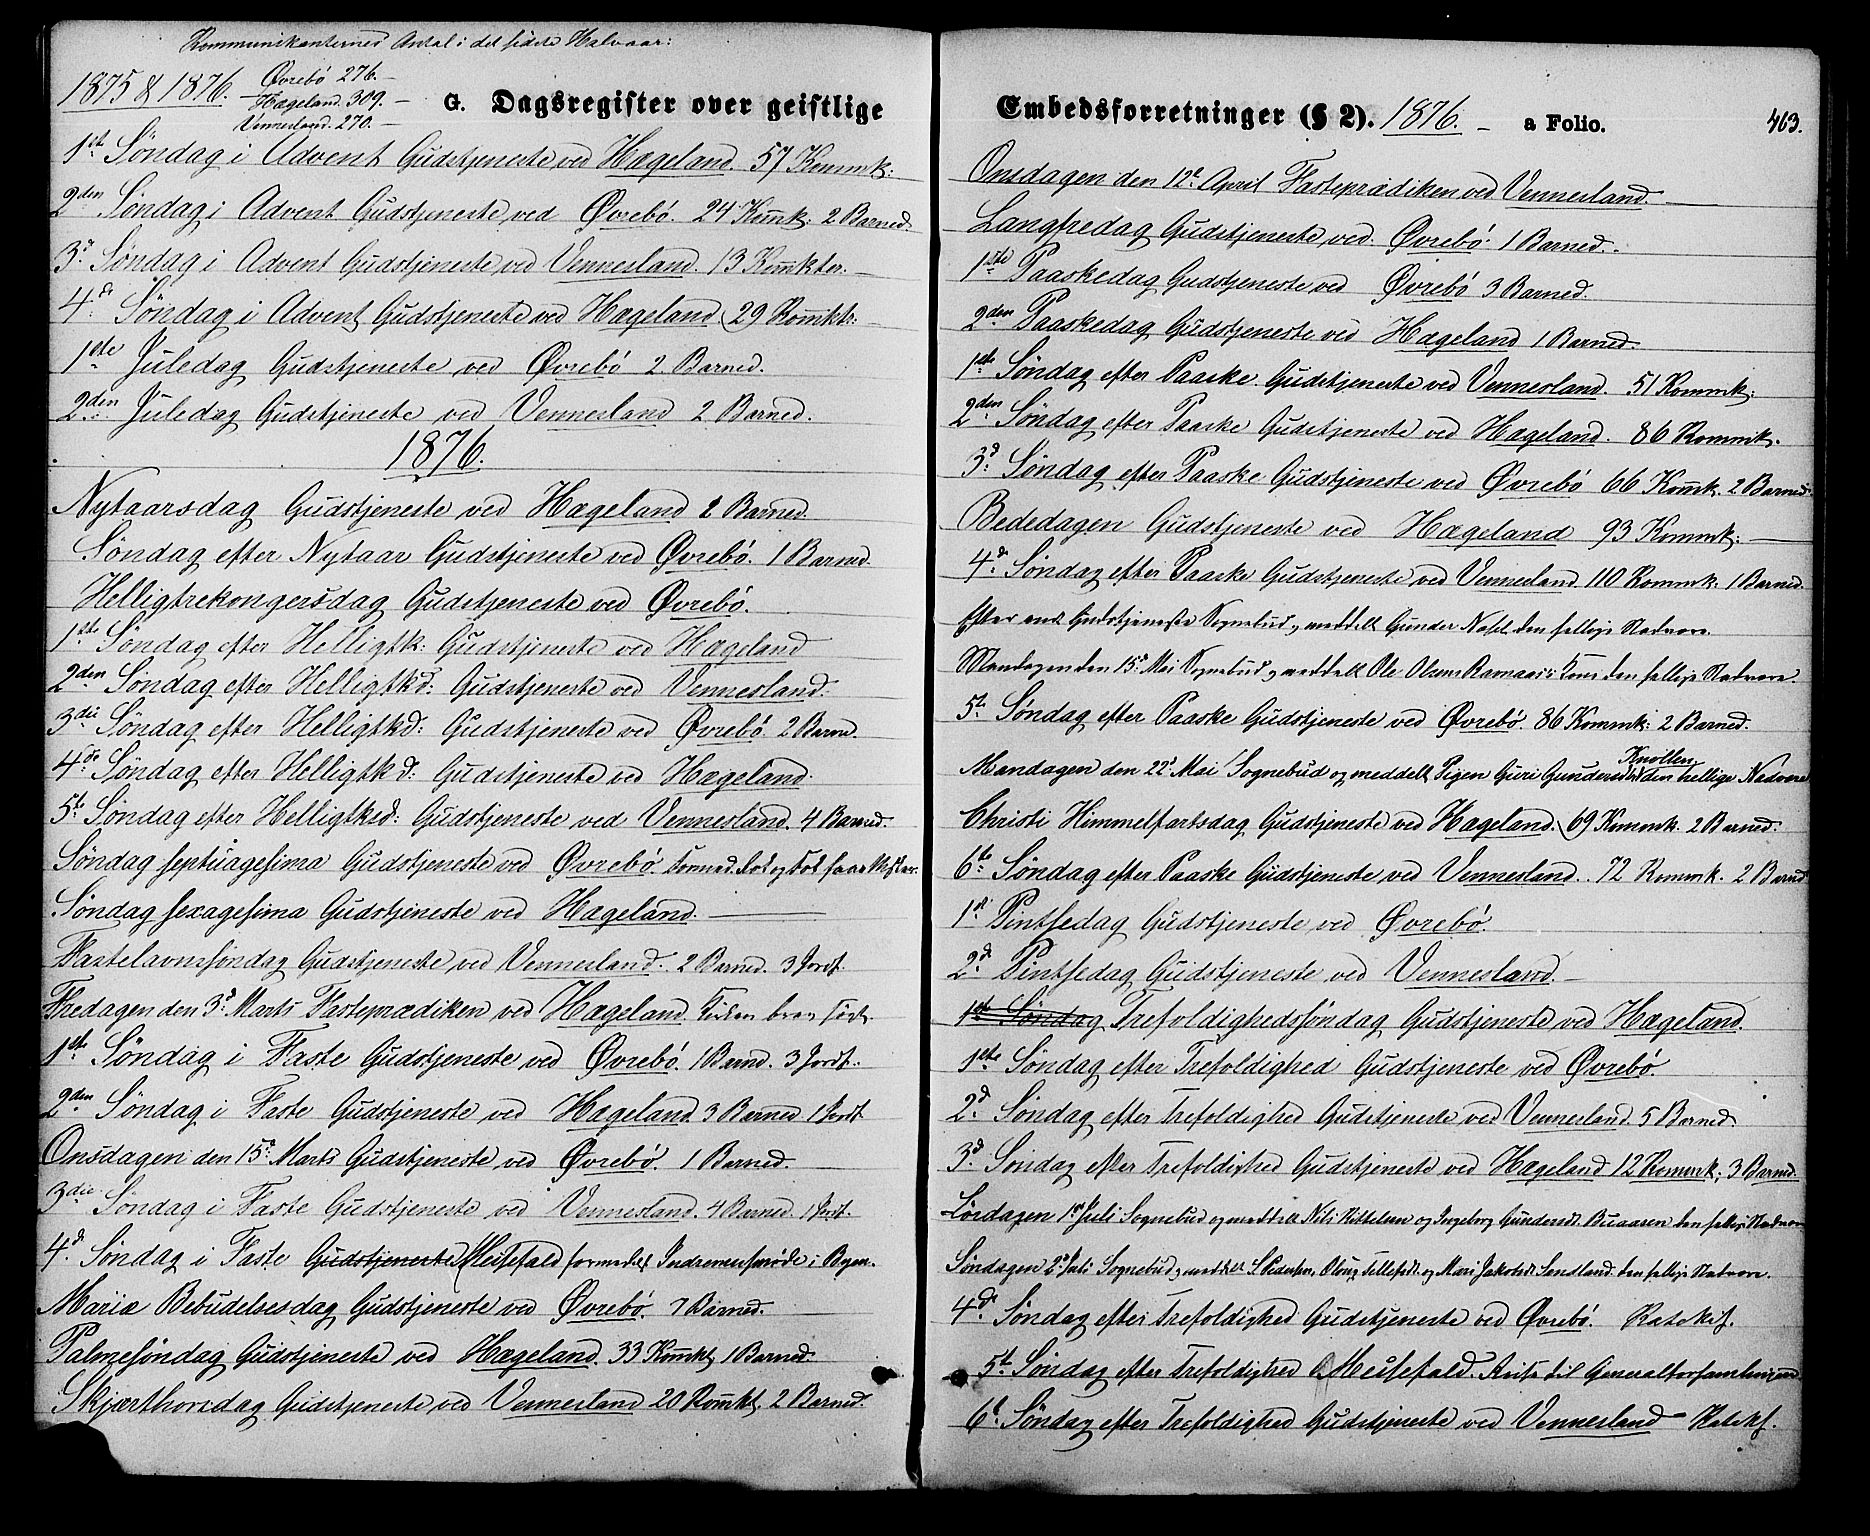 Kommunikanternes Antal i det sidste Halvaar:
1875 & 1876. Øvrebö 276. —
Hægeland. 309. —
Vennesland. 270. —
G. Dagsregister over geistlige
1ste Söndag i Advent Gudstjeneste ved Hægeland. 57 Kommk:
2den Söndag i Advent Gudstjeneste ved Øvrebö. 24 Kommk: 2 Barned.
3d Söndag i Advent Gudstjeneste ved Vennesland. 13 Kommkter. —
4d Söndag i Advent Gudstjeneste ved Hægeland 29 Kommkt: —
1ste Juledag Gudstjeneste ved Øvrebö 2 Barned.
2den Juledag Gudstjeneste ved Vennesland 2 Barned.
1876.
Nytaarsdag Gudstjeneste ved Hægeland 2 Barned.
Söndag efter Nytaar Gudstjeneste ved Øvrebö. 1 Barned.
Helligtrekongersdag Gudstjeneste ved Øvrebö.
1ste Söndag efter Helligtk: Gudstjeneste ved Hægeland
2den Söndag efter Helligtkd: Gudstjeneste ved Vennesland.
3die Söndag efter Helligtkd: Gudstjeneste ved Øvrebö. 2 Barne.
4de Söndag efter Helligtkd: Gudstjeneste ved Hægeland.
5te Söndag efter Helligtkd: Gudstjeneste ved Vennesland. 4 Barned.
Söndag septuagesima Gudstjeneste ved Øvrebö.
Söndag sexagesima Gudstjeneste ved Hægeland. —
Fastelavnssöndag Gudstjeneste ved Vennesland. 2 Barned. 3 Jordf.
Fredagen den 3d Marts Fasteprædiken ved Hægeland.
1ste Söndag i Faste Gudstjeneste ved Øvrebö. 1 Barned. 3 Jordf.
2den Söndag i Faste Gudstjeneste ved Hægeland. 3 Barned 1 Jordf.
Onsdagen den 15d Marts Gudstjeneste ved Øvrebö. 1 Barned.
3die Söndag i Faste Gudstjeneste ved Vennesland. 4 Barned. 1 Jordf.
4d Söndag i Faste Gudstjeneste Messefald formedelst i Byen.
Mariæ Bebudelsesdag Gudstjeneste ved Øvrebö. 7 Barned.
Palmesöndag Gudstjeneste ved Hægeland. 33 Kommkt 1 Barned.
Skjærthorsdag Gudstjeneste ved Vennesland 20 Kommkt 2 Barned.
Embedsforretninger (§ 2). 1876. — a Folio. 463.
Onsdagen den 12te April Fasteprædiken ved Vennesland. —
Langfredag Gudstjeneste ved Øvrebö. 1 Barned.
1ste Paaskedag Gudstjeneste ved Øvrebö 3 Barned.
2den Paaskedag Gudstjeneste ved Hægeland 1 Barned.
1ste Söndag efter Paaske Gudstjeneste ved Vennesland. 51 Kommk:
2den Söndag efter Paaske Gudstjeneste ved Hægeland. 86 Kommk.
3d Söndag efter Paaske Gudstjeneste ved Øvrebö 66 Kommk. 2 Barned.
Bededagen Gudstjeneste ved Hægeland 93 Kommk: —
4d Söndag efter Paaske Gudstjeneste ved Vennesland 110 Kommk. 1 Barned.
Efter endt Gudstjeneste Sognebud og meddelt Gunder den hellige Nadvere.
Mandagen den 15d Mai Sognebud og meddelt Ole Olsen Kone den hellige Nadvere.
5te Söndag efter Paaske Gudstjeneste ved Øvrebö. 86 Kommk: 2 Barned.
Mandagen den 22d Mai Sognebud og meddelt Pigen Guri Gundersd. Knollen den hellige Nadvere
Christi Himmelfartsdag Gudstjeneste ved Hægeland. 69 Kommk. 2 Barned.
6te Söndag efter Paaske Gudstjeneste ved Vennesland. 72 Kommk. 2 Barned
1ste Pintsedag Gudstjeneste ved Øvrebö.
2d Pintsedag Gudstjeneste ved Vennesland. —
1ste Söndag Trefoldighedssöndag Gudstjeneste ved Hægeland.
1ste Söndag efter Trefoldighed Gudstjeneste ved Øvrebö.
2d Söndag efter Trefoldighed Gudstjeneste ved Vennesland. 5 Barned.
3d Söndag efter Trefoldighed Gudstjeneste ved Hægeland 12 Kommk; 3 Barned.
Lördagen 1ste Juli Sognebud og meddelt Nils Kittelsen og Ingeborg Gundersdt. Buaasen den hellige Nadvere
Söndagen 2d Juli Sognebud og meddelt og Mari Jakobsdt. Sandland den hellige Nadvere.
4de Söndag efter Trefoldighed Gudstjeneste ved Øvrebö. Katekis.
5te Söndag efter Trefoldighed Messefald. Reise til Generalforsamlingen
6te Söndag efter Trefoldighed Gudstjeneste ved Vennesland — Katekis.